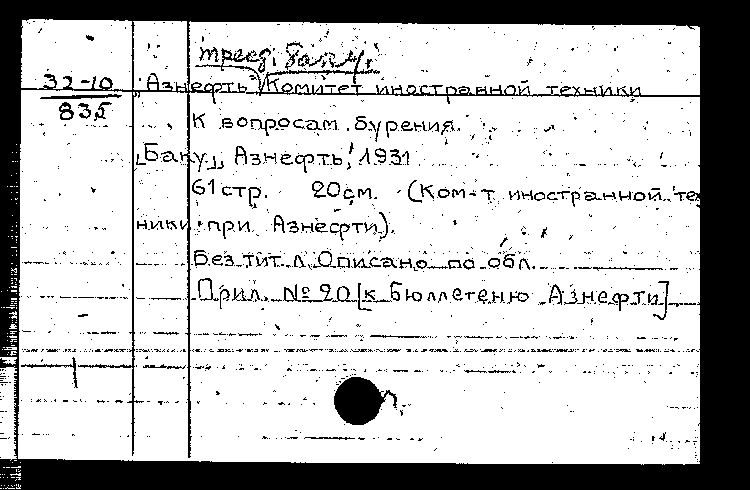 32-10
835
"Азнефть" Комитет иностранной техники
К вопросам бурения.
[Баку], Азнефть, 1931
61 стр. 20 см. (Ком-т иностранной тех
ники при Азнефти).
Без тит. л. Описано по обл.
Прил. № 20 [к Бюллетеню Азнефти]